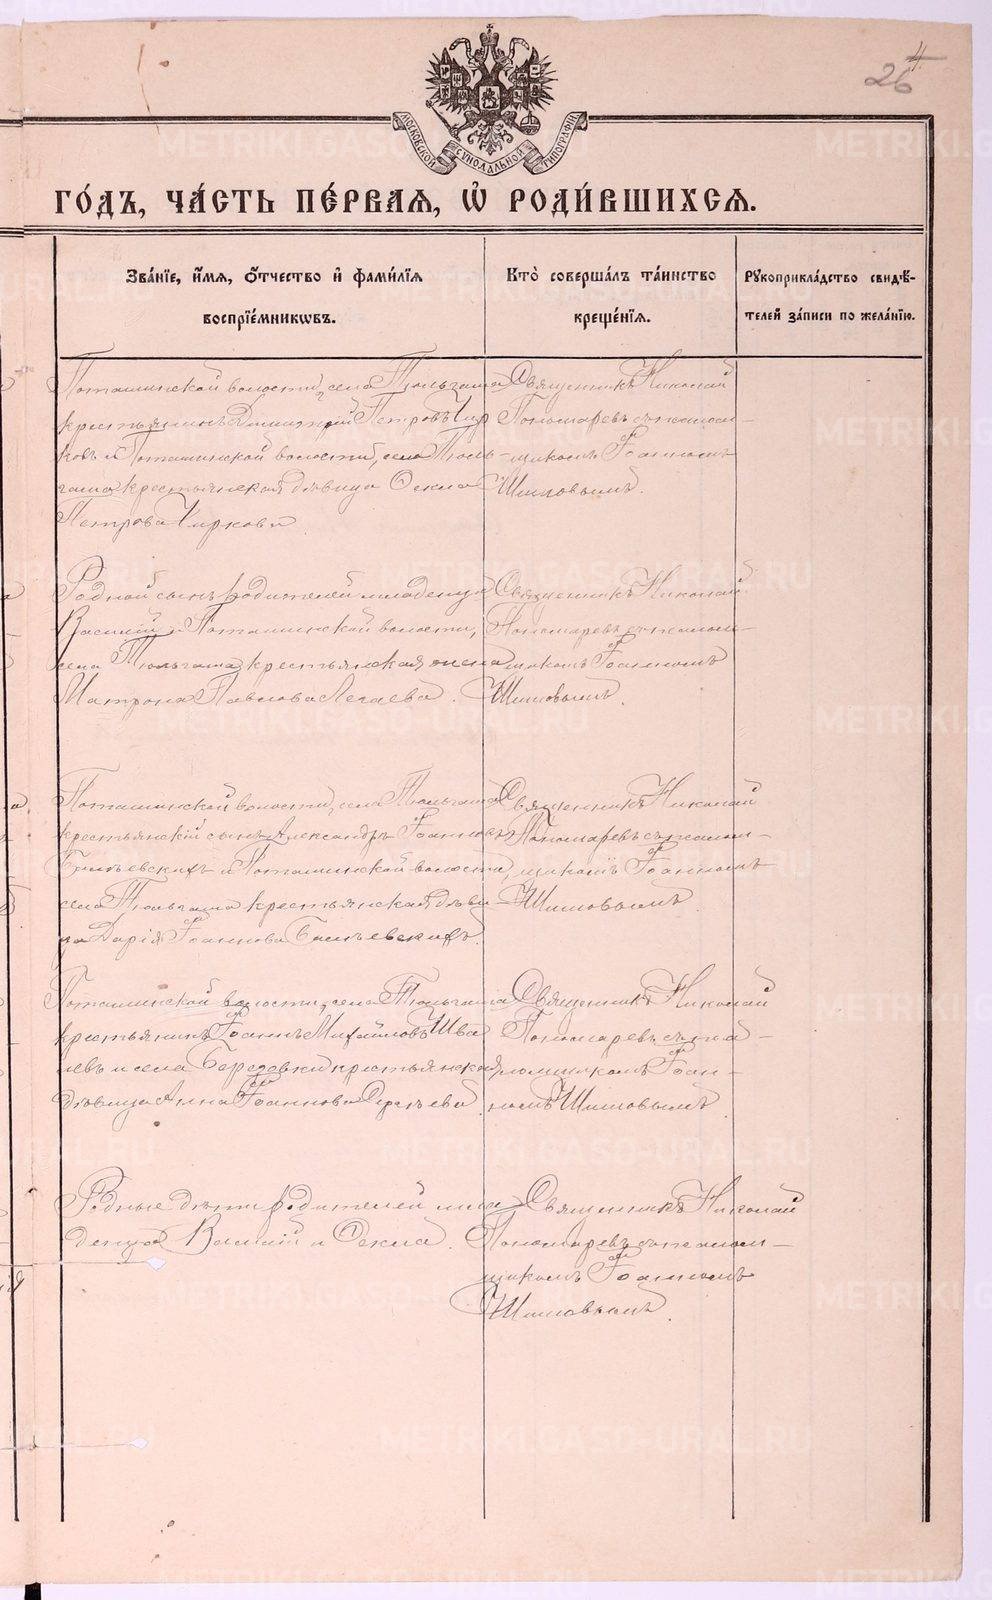 26
4.
МОСКОВСКОЙ СѴНОДАЛЬНОЙ ТИПОГРАФІИ
ГО́ДЪ, ЧА́СТЬ ПЕ́РВАЯ, Ѡ҆ РОДИ́ВШИХСЯ.
Зва́нїе, и҆́мя, ѻ҆́тчество и҆ фами́лїя
воспрїе́мникѡвъ.
Кто̀ соверша́лъ та́инство
креще́нїя.
Рꙋкоприкла́дство свидѣ́-
телей за́писи по жела́нїю.
Поташинской волости, села Тюльгаша
крестьянинъ Димитрій Петровъ Чир
ковъ и Поташинской волости, села Тюль-
гаша крестьянская дѣвица Ѳекла
Петрова Чиркова
Священникъ Николай
Пономаревъ съ псалом-
щикомъ Іоанномъ
Шишовымъ.
Родной сынъ родителей младенца
Василій и Поташинской волости,
села Тюльгаша крестьянская жена
Матрона Павлова Легаева.
Священникъ Николай
Пономаревъ съ псалом-
щикомъ Іоанномъ
Шишовымъ.
Поташинской волости, села Тюльгаша
крестьянскій сынъ Александръ Іоанновъ
и Поташинской волости,
села Тюльгаша крестьянская дѣви
ца Дарія Іоаннова
Священникъ Николай
Пономаревъ съ псалом-
щикомъ Іоанномъ
Шишовымъ
Поташинской волости, села Тюльгаша
крестьянинъ Іоаннъ Михайловъ Шва
левъ и села Березовки крестьянская
дѣвица Анна Іоаннова Сергѣева
Священникъ Николай
Пономаревъ съ пса-
ломщикомъ Іоан-
номъ Шишовымъ
Родные дѣти родителей мла
денца Василій и Ѳекла.
Священникъ Николай
Пономаревъ съ псалом-
щикомъ Іоанномъ
Шишовымъ.
METRIKI.GASO-URAL.RU